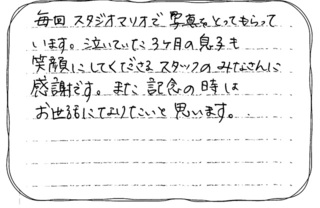 毎回スタジオマリオで写真をとってもらって
います。泣いていた3ヶ月の息子も
笑顔にしてくださるスタッフのみなさんに
感謝です。また記念の時は
お世話になりたいと思います。